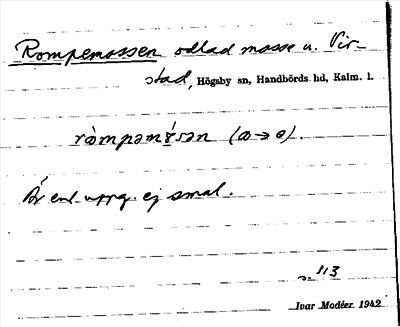 Rompemossen odlad mosse u. Vir-
stad, Högsby sn, Handbörds hd, Kalm. l.
ròmpəmɤ́sən (ɷ→o).
Är enl. uppg. ej smal.
s. 113
Ivar Modéer 1942